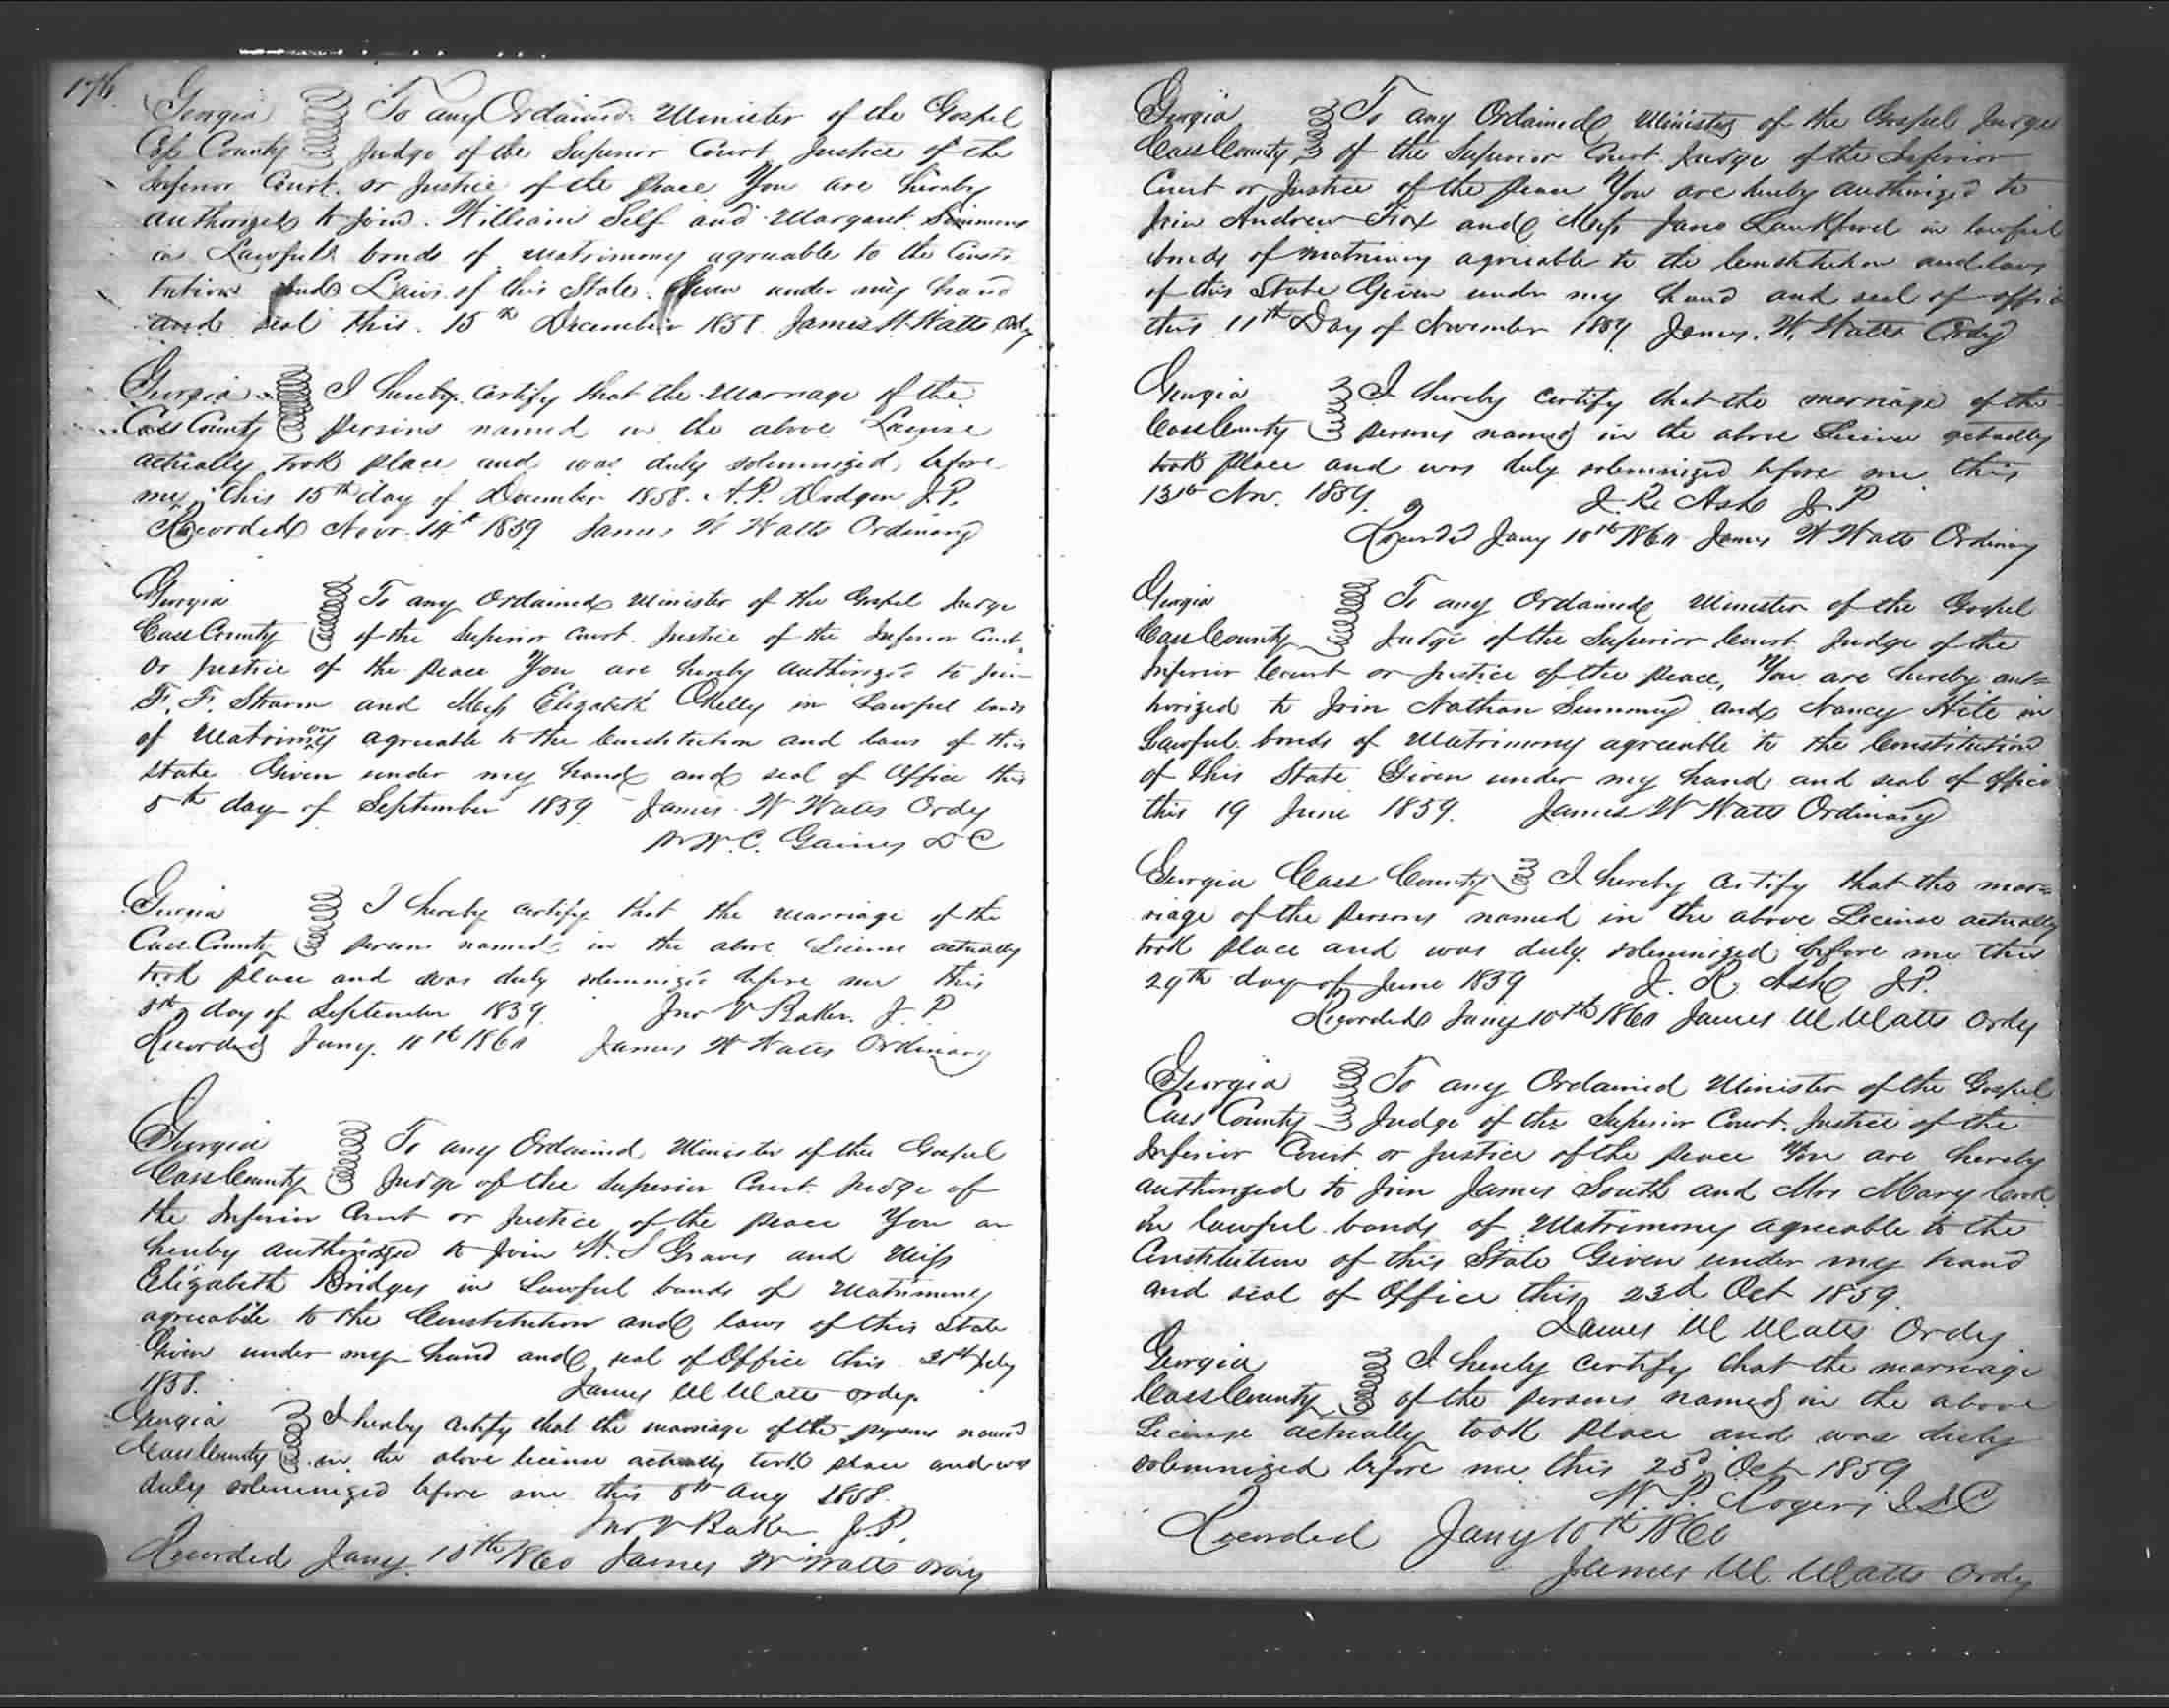 176
Georgia To any Ordained Minister of the Gospel
Cass County Judge of the Superior Court Justice of the
Inferior Court or Justice of the Peace You are hereby
authorized to Join William Self and Margaret Simmons
in Lawful bonds of matrimony agreeable to the Consti
tution and Laws of this State. Given under my hand
and seal this 15th December 1858 James W. Watts Ordy
Georgia I hereby certify that the Marriage of the
Cass County persons named in the above License
actually took place and was duly solemnized before
me this 15th day of December 1858. A.P. J.P.
Recorded Novr. 14th 1859 James W Watts Ordinary
Georgia To any Ordained Minister of the Gospel Judge
Cass County of the Superior Court Justice of the Inferior Court
or Justice of the peace You are hereby authorized to join
F. F. and Miss Elizabeth OKelly in Lawful bonds
of Matrimony agreeable to the Constitution and laws of this
State Given under my hand and seal of Office this
5th day of September 1859 James W Watts Ordy
W.C. Gaines D C
Georgia I hereby certify that the marriage of the
Cass County persons named in the above License actually
took place and was duly solemnized before me this
day of September 1859 Jno V Baker J. P
Recorded Jany. 10th 1860 James W Watts Ordinary
Georgia To any Ordained Minister of the Gospel
Cass County Judge of the Superior Court Judge of
the Inferior Court or Justice of the peace You are
hereby authorized to Join W. S Graves and Miss
Elizabeth Bridges in Lawful bonds of Matrimony
agreeable to the Constitution and laws of this State
Given under my hand and seal of Office this 31st July
1858. James W Watts Ordy.
Georgia I hereby certify that the marriage of the persons named
Cass County in the above license actually took place and was
duly solemnized before me this Aug 1858.
Jno V Baker J.P.
Recorded Jany. 10th 1860 James W Watts Ordy
Georgia To any Ordained Minister of the Gospel Judge
Cass County of the Superior Court Judge of the Inferior
Court or Justice of the peace You are hereby authorized to
Join Andrew and Miss Jane Lankford in lawful
bonds of matrimony agreeable to the Constitution and laws
of this State Given under my hand and seal of office
this 11th Day of November 1859 James. W. Watts Ordy
Georgia I hereby certify that the marriage of the
Cass County persons named in the above License actually
took place and was duly solemnized before me this
13th Nov. 1859. J. R. Ash J. P
Recorded Jany 10th 1860 James W Watts Ordinary
Georgia To any Ordained Minister of the Gospel
Cass County Judge of the Superior Court Judge of the
Inferior Court or Justice of the peace, You are hereby aut=
horized to Join Nathan Summey and Nancy Hite in
Lawful bonds of Matrimony agreeable to the Constitution
of this State Given under my hand and seal of office
this 19 June 1859. James W Watts Ordinary
Georgia Cass County I hereby certify that the mar=
riage of the persons named in the above License actually
took place and was duly solemnized before me this
29th day of June 1859 J. R. Ash J.P.
Recorded Jany 10th 1860 James W Watts Ordy
Georgia To any Ordained Minister of the Gospel
Cass County Judge of the Superior Court Justice of the
Inferior Court or Justice of the peace You are hereby
authorized to Join James South and Mrs Mary Cook
in lawful bonds of Matrimony agreeable to the
Constitution of this State Given under my hand
and seal of Office this 23d Oct 1859.
James W Watts Ordy
Georgia I hereby certify that the marriage
Cass County of the persons named in the above
License actually took place and was duly
solemnized before me this 23d Oct 1859
W. P. Rogers
Recorded Jany 10th 1860
James W. Watts Ordy